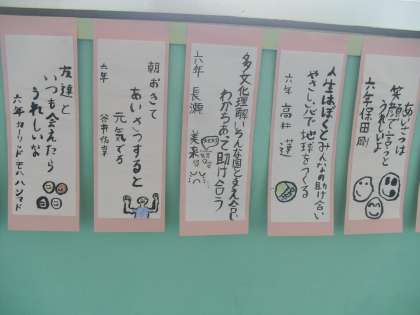 笑顔で言うと
うれしいよ
六年 保田 剛
人生はぼくとみんなの助け合い
やさしい心で地球をつくる
六年 高井 蓮
多文化理解いろんな国と支え合い
わかちあって助け合う
六年 長瀬 美来
朝おきて
あいさつすると
元気でる
六年
友達と
いつも会えたら
うれしいな
六年